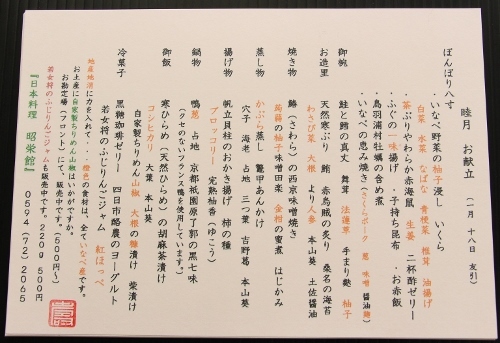 睦月　お献立　(一月　十八日　友引)
ぼんぼり八寸
・いなべ野菜の柚子浸し　いくら
白菜　水菜　なばな　青梗菜　椎茸　油揚げ
・茶ぶりやわらか赤海鼠　生姜　二杯酢ゼリー
・ふぐの一味揚げ　・子持ち昆布　・お赤飯
・鳥羽浦村牡蠣の含め煮
・いなべの恵み焼き(さくらポーク　葱　味噌　醤油麹)
御椀
鮭と鱈の真丈　舞茸　法蓮草　手まり麩　柚子
お造里
天然寒ぶり　鮪　赤烏賊の炙り　桑名の海苔
わさび菜　大根　より人参　本山葵　土佐醤油
焼き物
鰆(さわら)の西京味噌焼き
蒟蒻の柚子味噌田楽　金柑の蜜煮　はじかみ
蒸し物
かぶら蒸し　鼈甲あんかけ
穴子　海老　占地　三つ葉　吉野葛　本山葵
揚げ物
帆立貝柱のおかき揚げ　柿の種
ブロッコリー　完熟柚香(ゆこう)
鍋物
鴨葱　占地　京都祇園原了郭の黒七味
(クセのないフランス鴨を使用しています。)
御飯
寒ひらめ(天然ひらめ)の胡麻茶漬け
コシヒカリ　大葉　本山葵
自家製ちりめん山椒　大根の糠漬け　柴漬け
冷菓子
黒糖珈琲ゼリー　四日市酪農のヨーグルト
若女将のふじりんごジャム　紅ほっぺ
地産地消に力を入れて・・・橙色の食材は、全ていなべ産です。
お土産に自家製ちりめん山椒はいかがですか。
お勘定場(フロント)にて、販売中です。(500円～)
若女将のふじりんごジャムも販売中です。220g　500円
『日本料理　昭栄館』　0594(72)2065